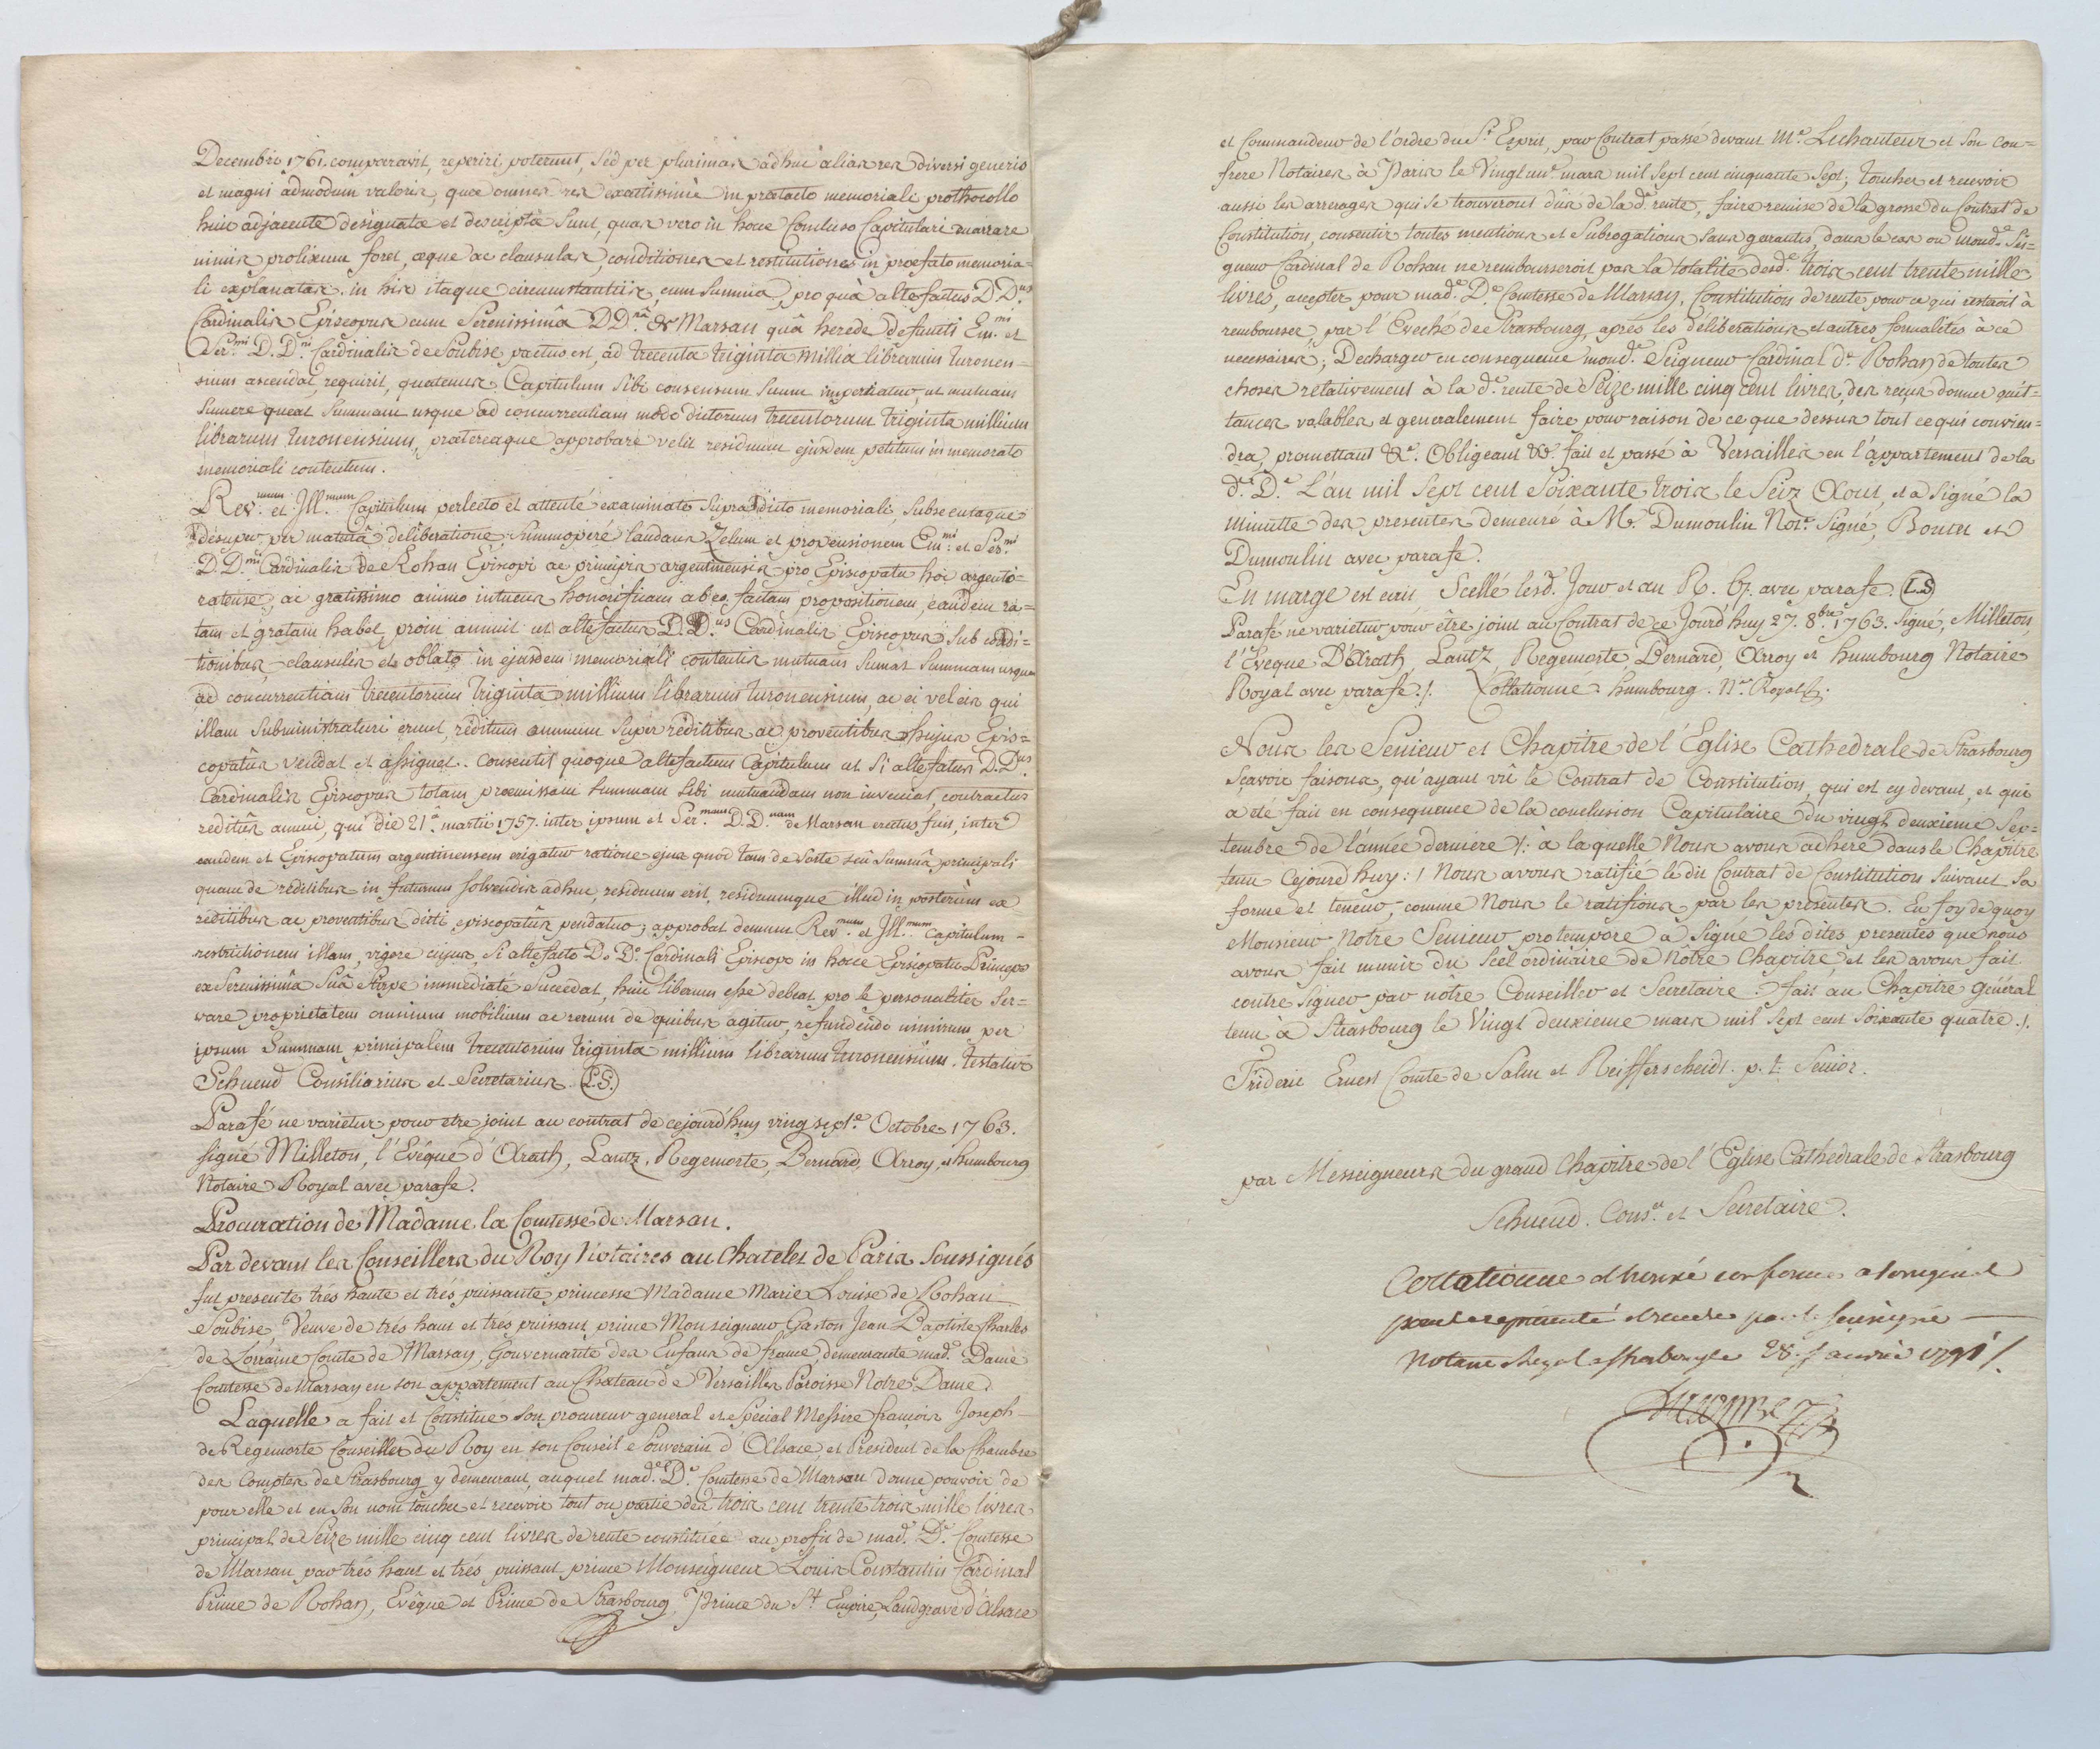 Decembris 1761. comparavit, reperiri poterunt, sed per plurimas adhuc alias res diversi generis
et magni admodum valoris, quae omnes res exactissimè in praetacto memoriali prothocollo
huic adjacente designatae et descriptae sunt, quas vero in hocce Concluso Capitulari narrare
nimis prolixum foret, aeque ac clausulas, conditiones et restitutiones in praefato memoria=
li explanatas. in his itaque circumstantiis, cum summa, pro quâ altefactus D.D.us
Cardinalis Episcopus cum Serenissimâ D.D.nâ de Marsan quâ herede defuncti Em.mi et
Ser.mi D.D.ni Cardinalis de Soubise pactus est, ad trecenta triginta millia librarum turonen=
sium ascendat, requirit, quatenus Capitulum sibi consensum suum impertiatur, ut mutuam
sumere queat summam usque ad concurrentiam modo dictorum trecentorum triginta millium
librarum turonensium, praetereaque approbare velit residuum ejusdem petitum in memorato
memoriali contentum.
Rev.mum et Ill.mum Capitulum perlecto et attenté examinato supradicto memoriali, subsecutaque
désuper per maturâ deliberatione, summoperé laudans Zelum et propensionem Em.mi et Ser.mi
D.D.ni Cardinalis de Rohan Episcopi ac principis argentinensis pro Episcopatu hoc argento=
ratense, ac gratissimo animo intuens honorificam ab eo factam propositionem, eandem ra=
tam et gratam habet, proin annuit ut altefactus D.D.us Cardinalis Episcopus sub condi=
tionibus, clausulis et oblato in ejusdem memoriali contentis mutuam sumat summam usque
ad concurrentiam trecentorum triginta millium librarum turonensium, ac ei vel eis qui
illam subministraturi erunt, reditum annuum super reditibus ac proventibus hujus Epis=
copatûs vendat et assignet. Consentit quoque altefactum Capitulum ut si altefatus D.D.us
Cardinalis Episcopus totam praemissam summam sibi mutuandam non inveniat, contractus
reditûs annui, qui die 21.â martii 1757. inter ipsum et Ser.mam D.D.nam de Marsan erectus fuit, inter
eandem et Episcopatum argentinensem erigatur ratione ejus quod tam de sorte seu summâ principali
quam de reditibus in futurum solvendis adhuc residuum erit, residuumque illud in posterum ex
reditibus ac proventibus dicti episcopatûs pendatur; approbat demum Rev.mum et Ill.mum Capitulum
restrictionem illam, vigore cujus, si altefacto D.D.o Cardinali Episcopo in hocce Episcopatu Princeps
ex Serenissimâ Suâ Stirpe immediaté succedat, huic liberum esse debeat pro se personaliter ser=
vare proprietatem omnium mobilium ac rerum de quibus agitur, refundendo nimirum per
ipsum summam principalem trecentorum triginta millium librarum turonensium. testatur
Schuend Consiliarius et Secretarius. (L.S.)
Parafé ne varietur pour etre joint au contrat de cejourd'huy vingt sept.e Octobre 1763.
signé Milleton, l'Evéque d'Arath, Lantz, Regemorte, Bernard, Arroy, et humbourg
Notaire Royal avec parafe.
Procuration de Madame la Comtesse de Marsan.
Par devant les Conseillers du Roy Notaires au Chatelet de Paris Soussignés
fut presente trés haute et trés puissante princesse Madame Marie Louise de Rohan
Soubise, Veuve de trés haut et tres puissant prince Monseigneur Gaston Jean Baptiste Charles
de Lorraine Comte de Marsan, Gouvernante des Enfans de france, demeurante mad.e Dame
Comtesse de Marsan en son appartement au Chateau de Versailles Paroisse Notre Dame.
Laquelle a fait et Constitué son procureur general et special Messire françois Joseph
de Regemorte Conseiller du Roy en son Conseil Souverain d'Alsace, et President de la Chambre
des Comptes de Strasbourg y demeurant, auquel mad.e D.e Comtesse de Marsan donne pouvoir de
pour elle et en son nom toucher et recevoir tout ou partie des trois cent trente trois mille livres
principal de Seize mille cinq cent livres de rente constituée au profit de mad.e D.e Comtesse
de Marsan par trés haut et trés puissant prince Monseigneur Louis Constantin Cardinal
Prince de Rohan, Evêque et Prince de Strasbourg, Prince du S.t Empire, Landgrave d'Alsace
et Commandeur de l'ordre du S.t Esprit, par Contrat passé devant M.e Lechanteur et son con=
frere Notaires à Paris le Vingt un.e mars mil sept cent cinquante sept; toucher et recevoir
aussi les arrerages qui se trouveront dûs de la d.e rente, faire remise de la grosse du Contrat de
Constitution, consentir toutes mentions et Subrogations sans garantie, dans le cas où mond.e Sei=
gneur Cardinal de Rohan ne rembourseroit pas la totalité desd.s trois cent trente mille
livres, accepter pour mad.e D.e Comtesse de Marsan, Constitution de rente pour ce qui resteroit à
rembourser, par l'Evêché de Strasbourg, aprés les déliberations et autres formalités à ce
necessaires; Decharger en consequence mond.e Seigneur Cardinal de Rohan de toutes
choses relativement à la d.e rente de Seize mille cinq cent livres, des reçus donner quit=
tances valables et generalement faire pour raison de ce que dessus tout ce qui convien=
dra, promettant &.a Obligeant &.a fait et passé à Versailles en l'appartement de la
d.e D.e L'an mil sept cent Soixante trois le Seiz Aout, et a signé la
minutte des presentes demeuré à M.e Dumoulin Not.e Signé, Bouin et
Dumoulin avec parafe.
En marge est ecrit Scellé lesd. Jour et an avec parafe. (L.S)
Parafé ne varietur pour être joint au Contrat de ce Jourd'huy 27. 8.bre 1763. Signé, Milleton,
l'Eveque D'Arath, Lantz, Regemorte, Bernard, Arroy et humbourg Notaire
Royal avec parafe./. Collationné humbourg. N.re Royal.
Nous les Senieur et Chapitre de l'Eglise Cathedrale de Strasbourg
Sçavoir faisons, qu'ayant vû le Contrat de Constitution, qui est cy devant, et qui
a été fait en consequence de la conclusion Capitulaire du vingt deuxieme Sep=
tembre de l'année derniere /: à laquelle Nous avons adheré dans le Chapitre
tenu Cejourd'huy :/ Nous avons ratifié le dit Contrat de Constitution suivant sa
forme et teneur, comme Nous le ratifions par les presentes. En foy de quoy
Monsieur Notre Senieur pro tempore a Signé les dites presentes que nous
avons fait munir du Scel ordinaire de Notre Chapitre, et les avons fait
contre Signer par nôtre Conseiller et Secretaire. fait au Chapitre général
tenu à Strasbourg le Vingt deuxieme mars mil sept cent Soixante quatre./.
Frideric Ernest Comte de Salm et Reifferscheidt. p. t. Senior.
par Messeigneurs du grand Chapitre de l'Eglise Cathedrale de Strasbourg
Schuend. Cons.er et Secretaire.
Collationné et trouvé conforme a loriginal
representé et rendu par le soussigné
Notaire Royal a strasbourg le 28. janvier 1791 /.